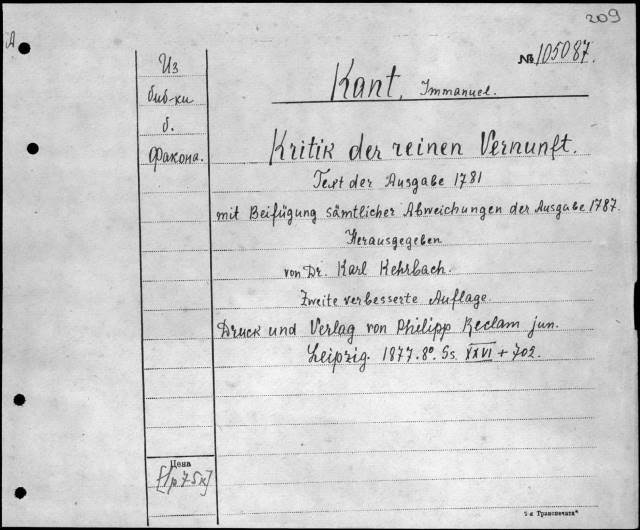 209
А
№ 105087.
Из
биб-ки
б.
Факона.
Kant, Immanuel.
Kritik der reinen Vernunft.
Text der Ausgabe 1781
mit Beifügung sämtlicher Abweichungen der Ausgabe 1787.
Herausgegeben
von Dr. Karl Kehrbach.
Zweite verbesserte Auflage.
Druck und Verlag von Philipp Reclam jun.
Leipzig. 1877. 8º. Ss. XXVI + 702.
Цена
[1р75к]
2-я Транспечать"